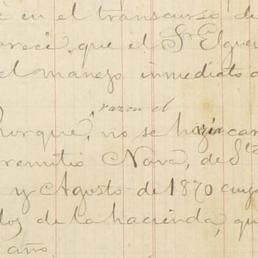 en el transcurso de
parece, que el Sr Elgue
el manejo inmediato d
razon el
Porque, no se hazia car
remitio Nava, de Sta
y Agosto de 1870 cuyo
dos de la hacienda, que
año.